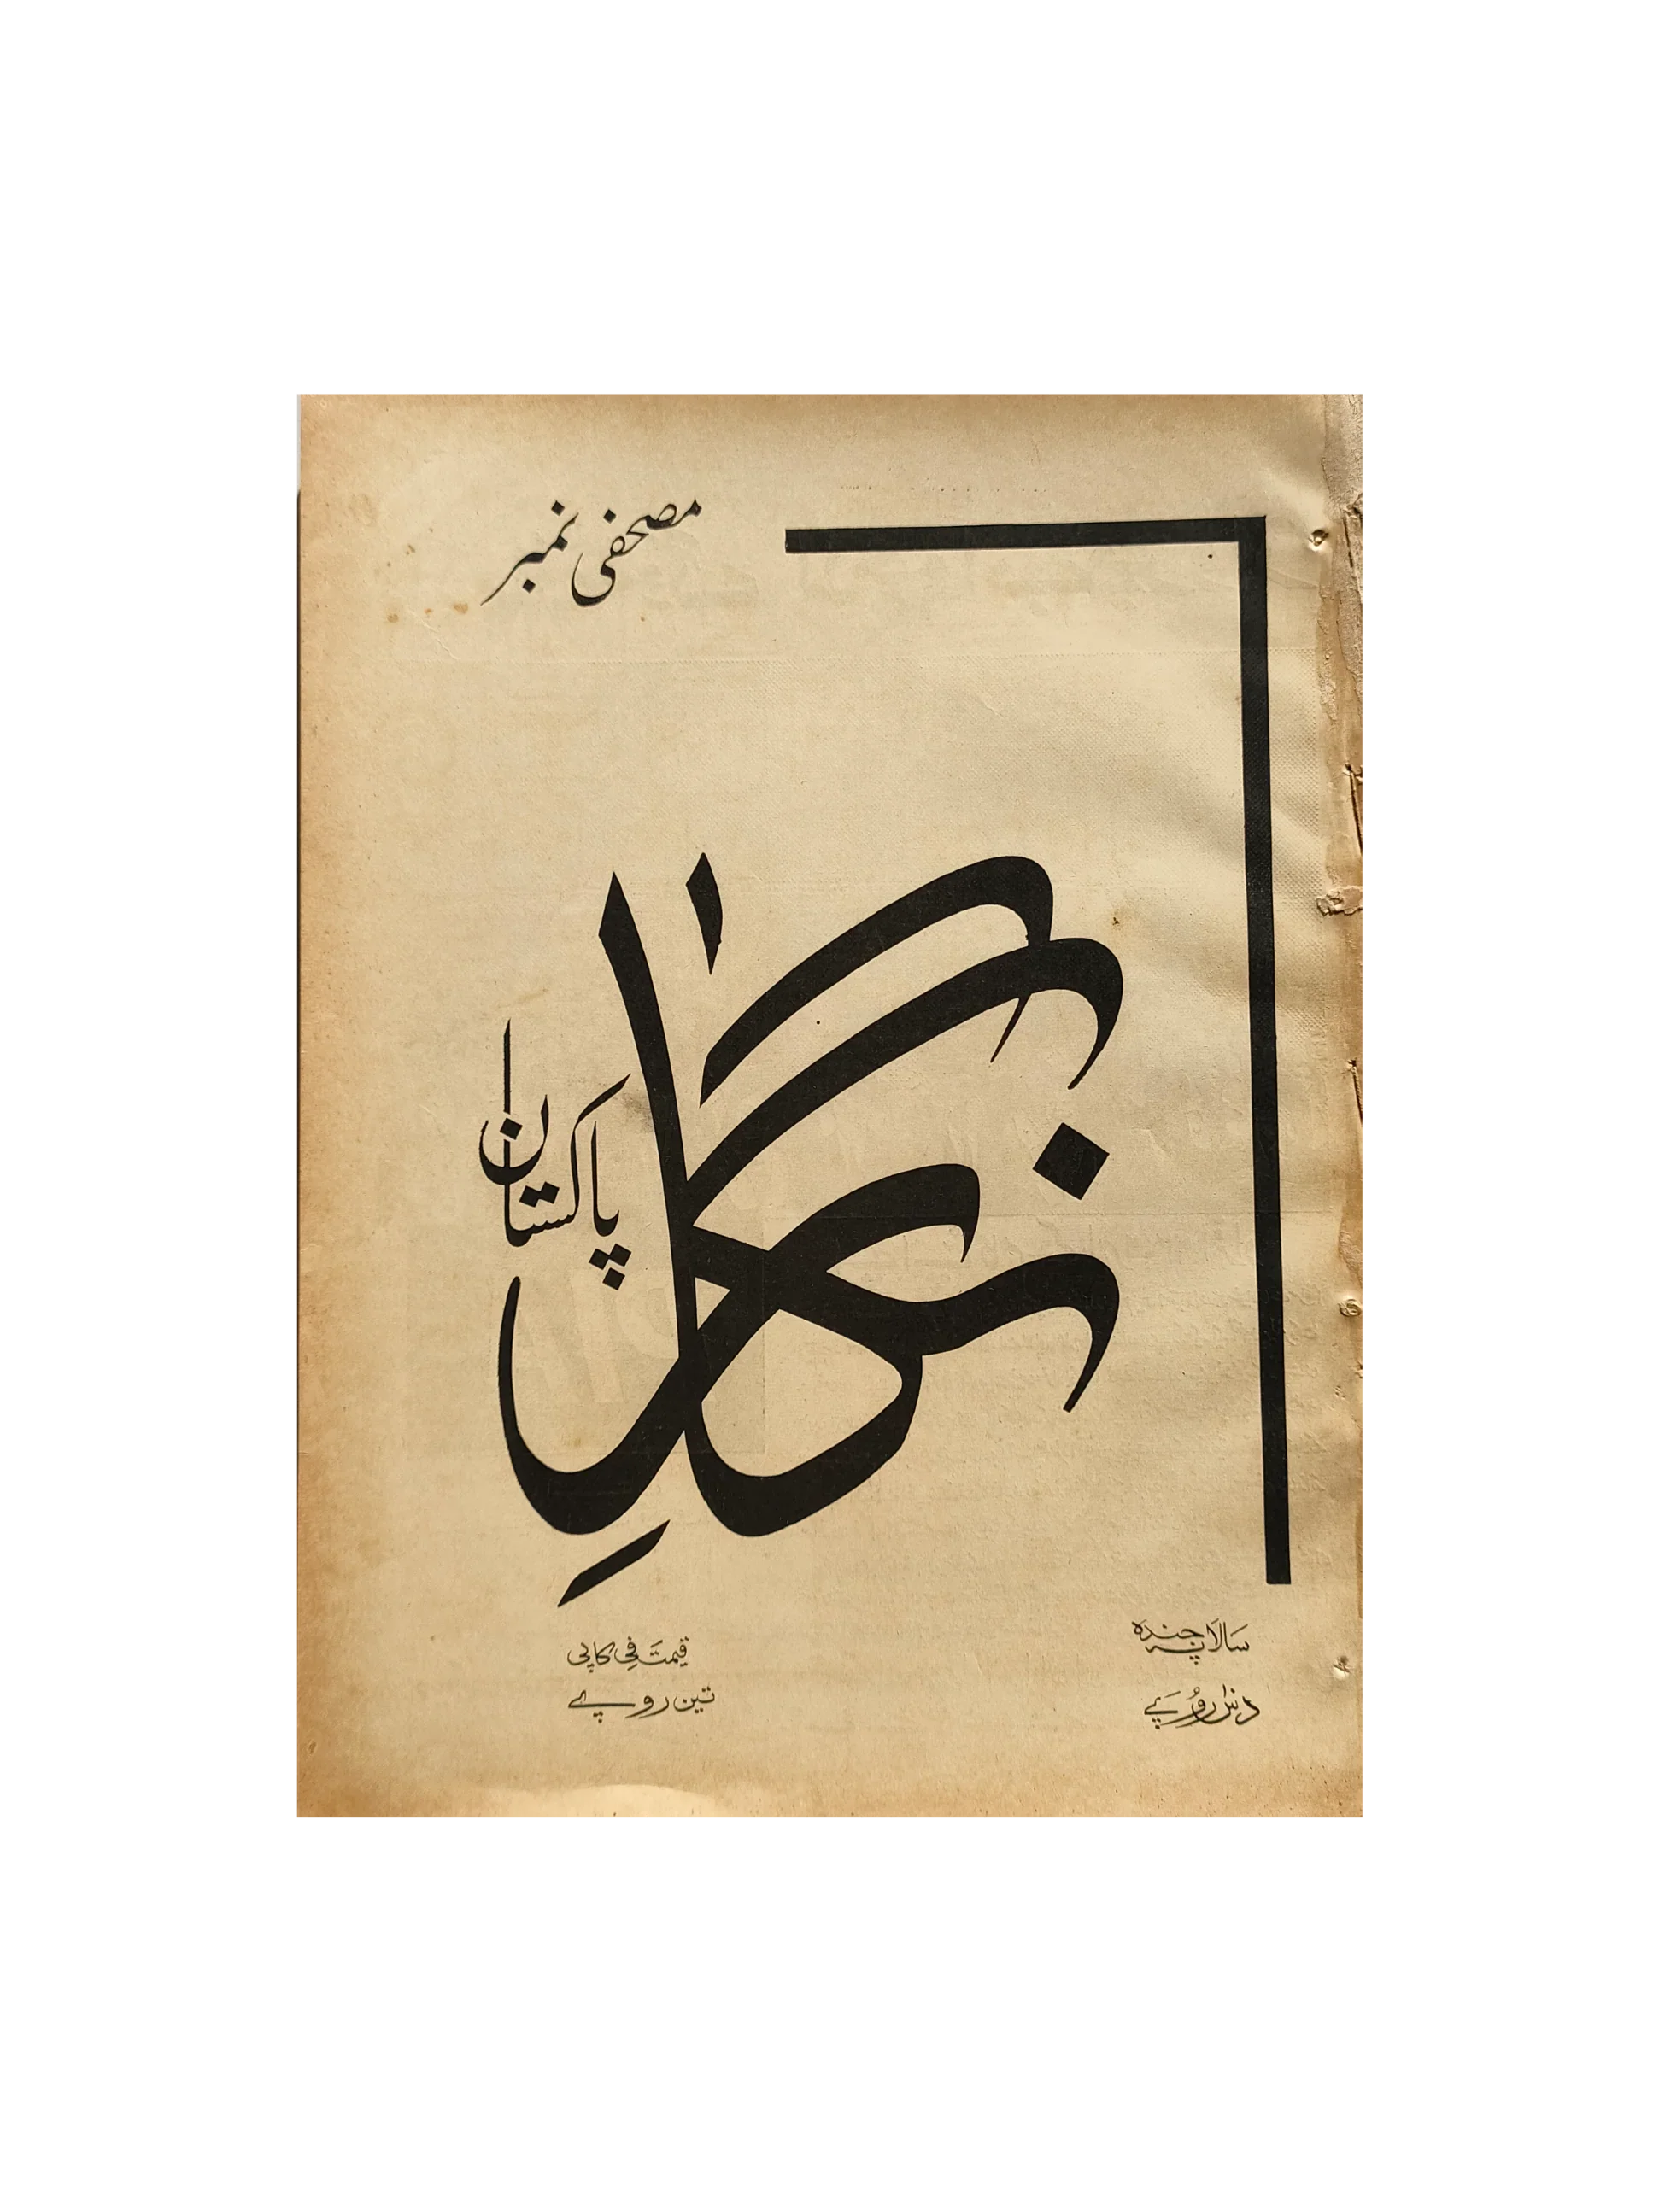 مصحفی نمبر
نگارِ
پاکستان
سالانہ چندہ
دس روپے
قیمت فی کاپی
تین روپے